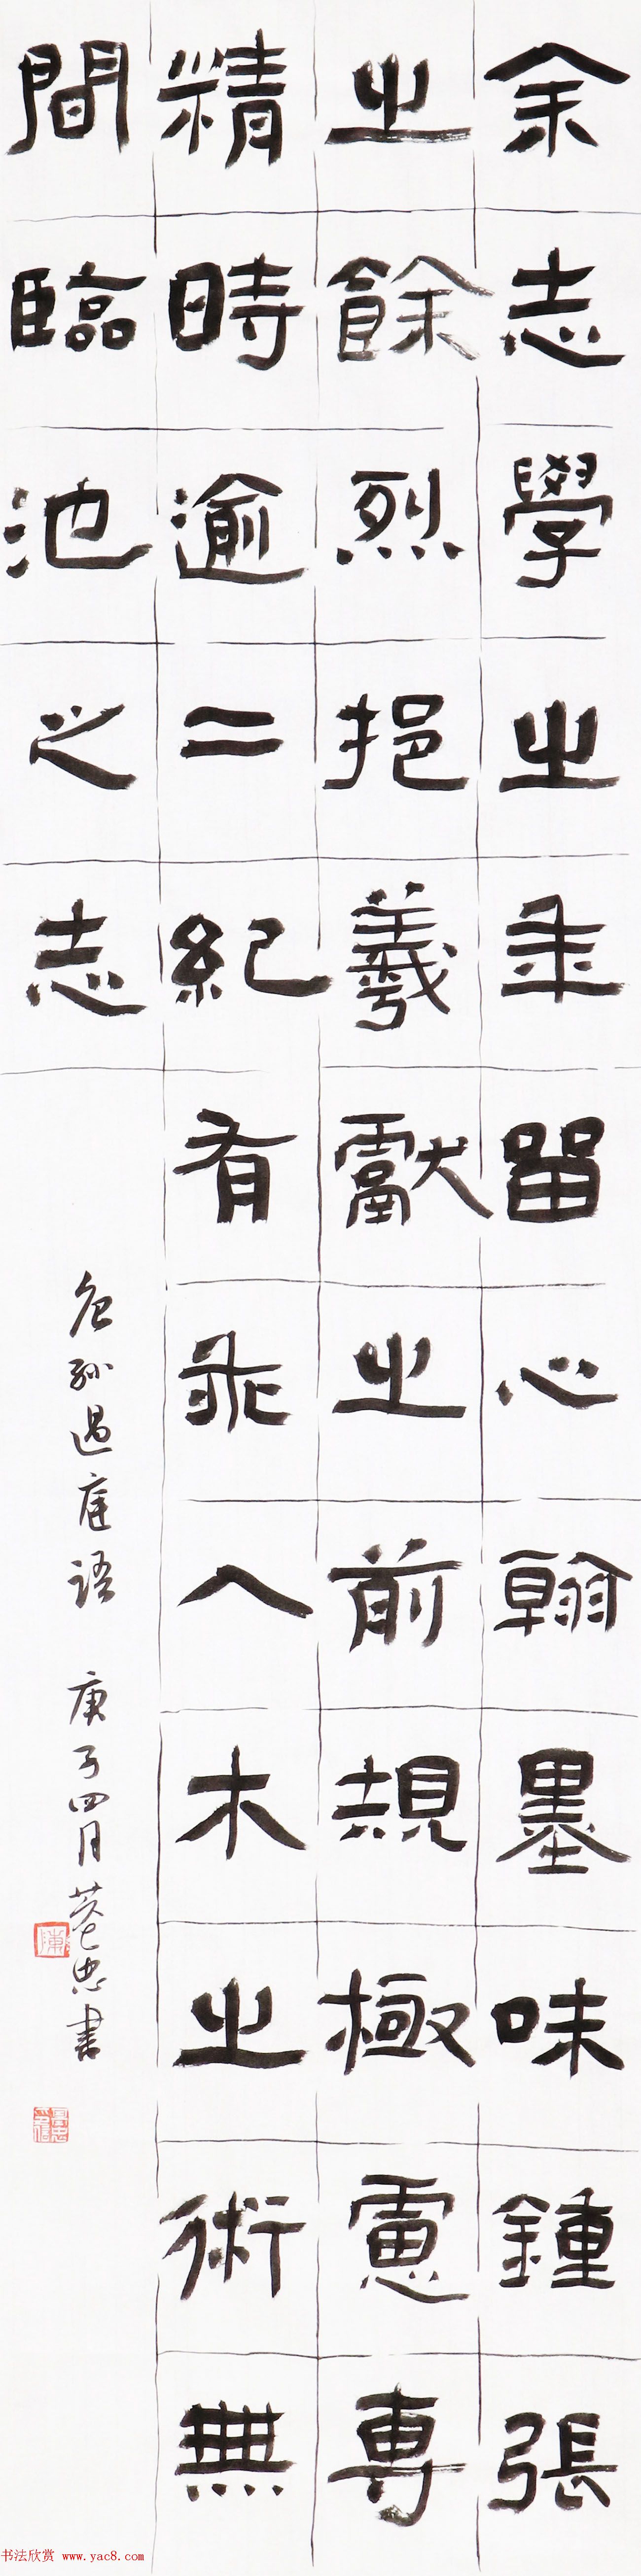 余志學之年留心翰墨味鍾張
之餘烈挹羲獻之前規極慮專
精時逾二紀有乖入木之術無
間臨池之志
孫過庭語 庚子四月 忠書
陳
书法欣赏 www.yac8.com